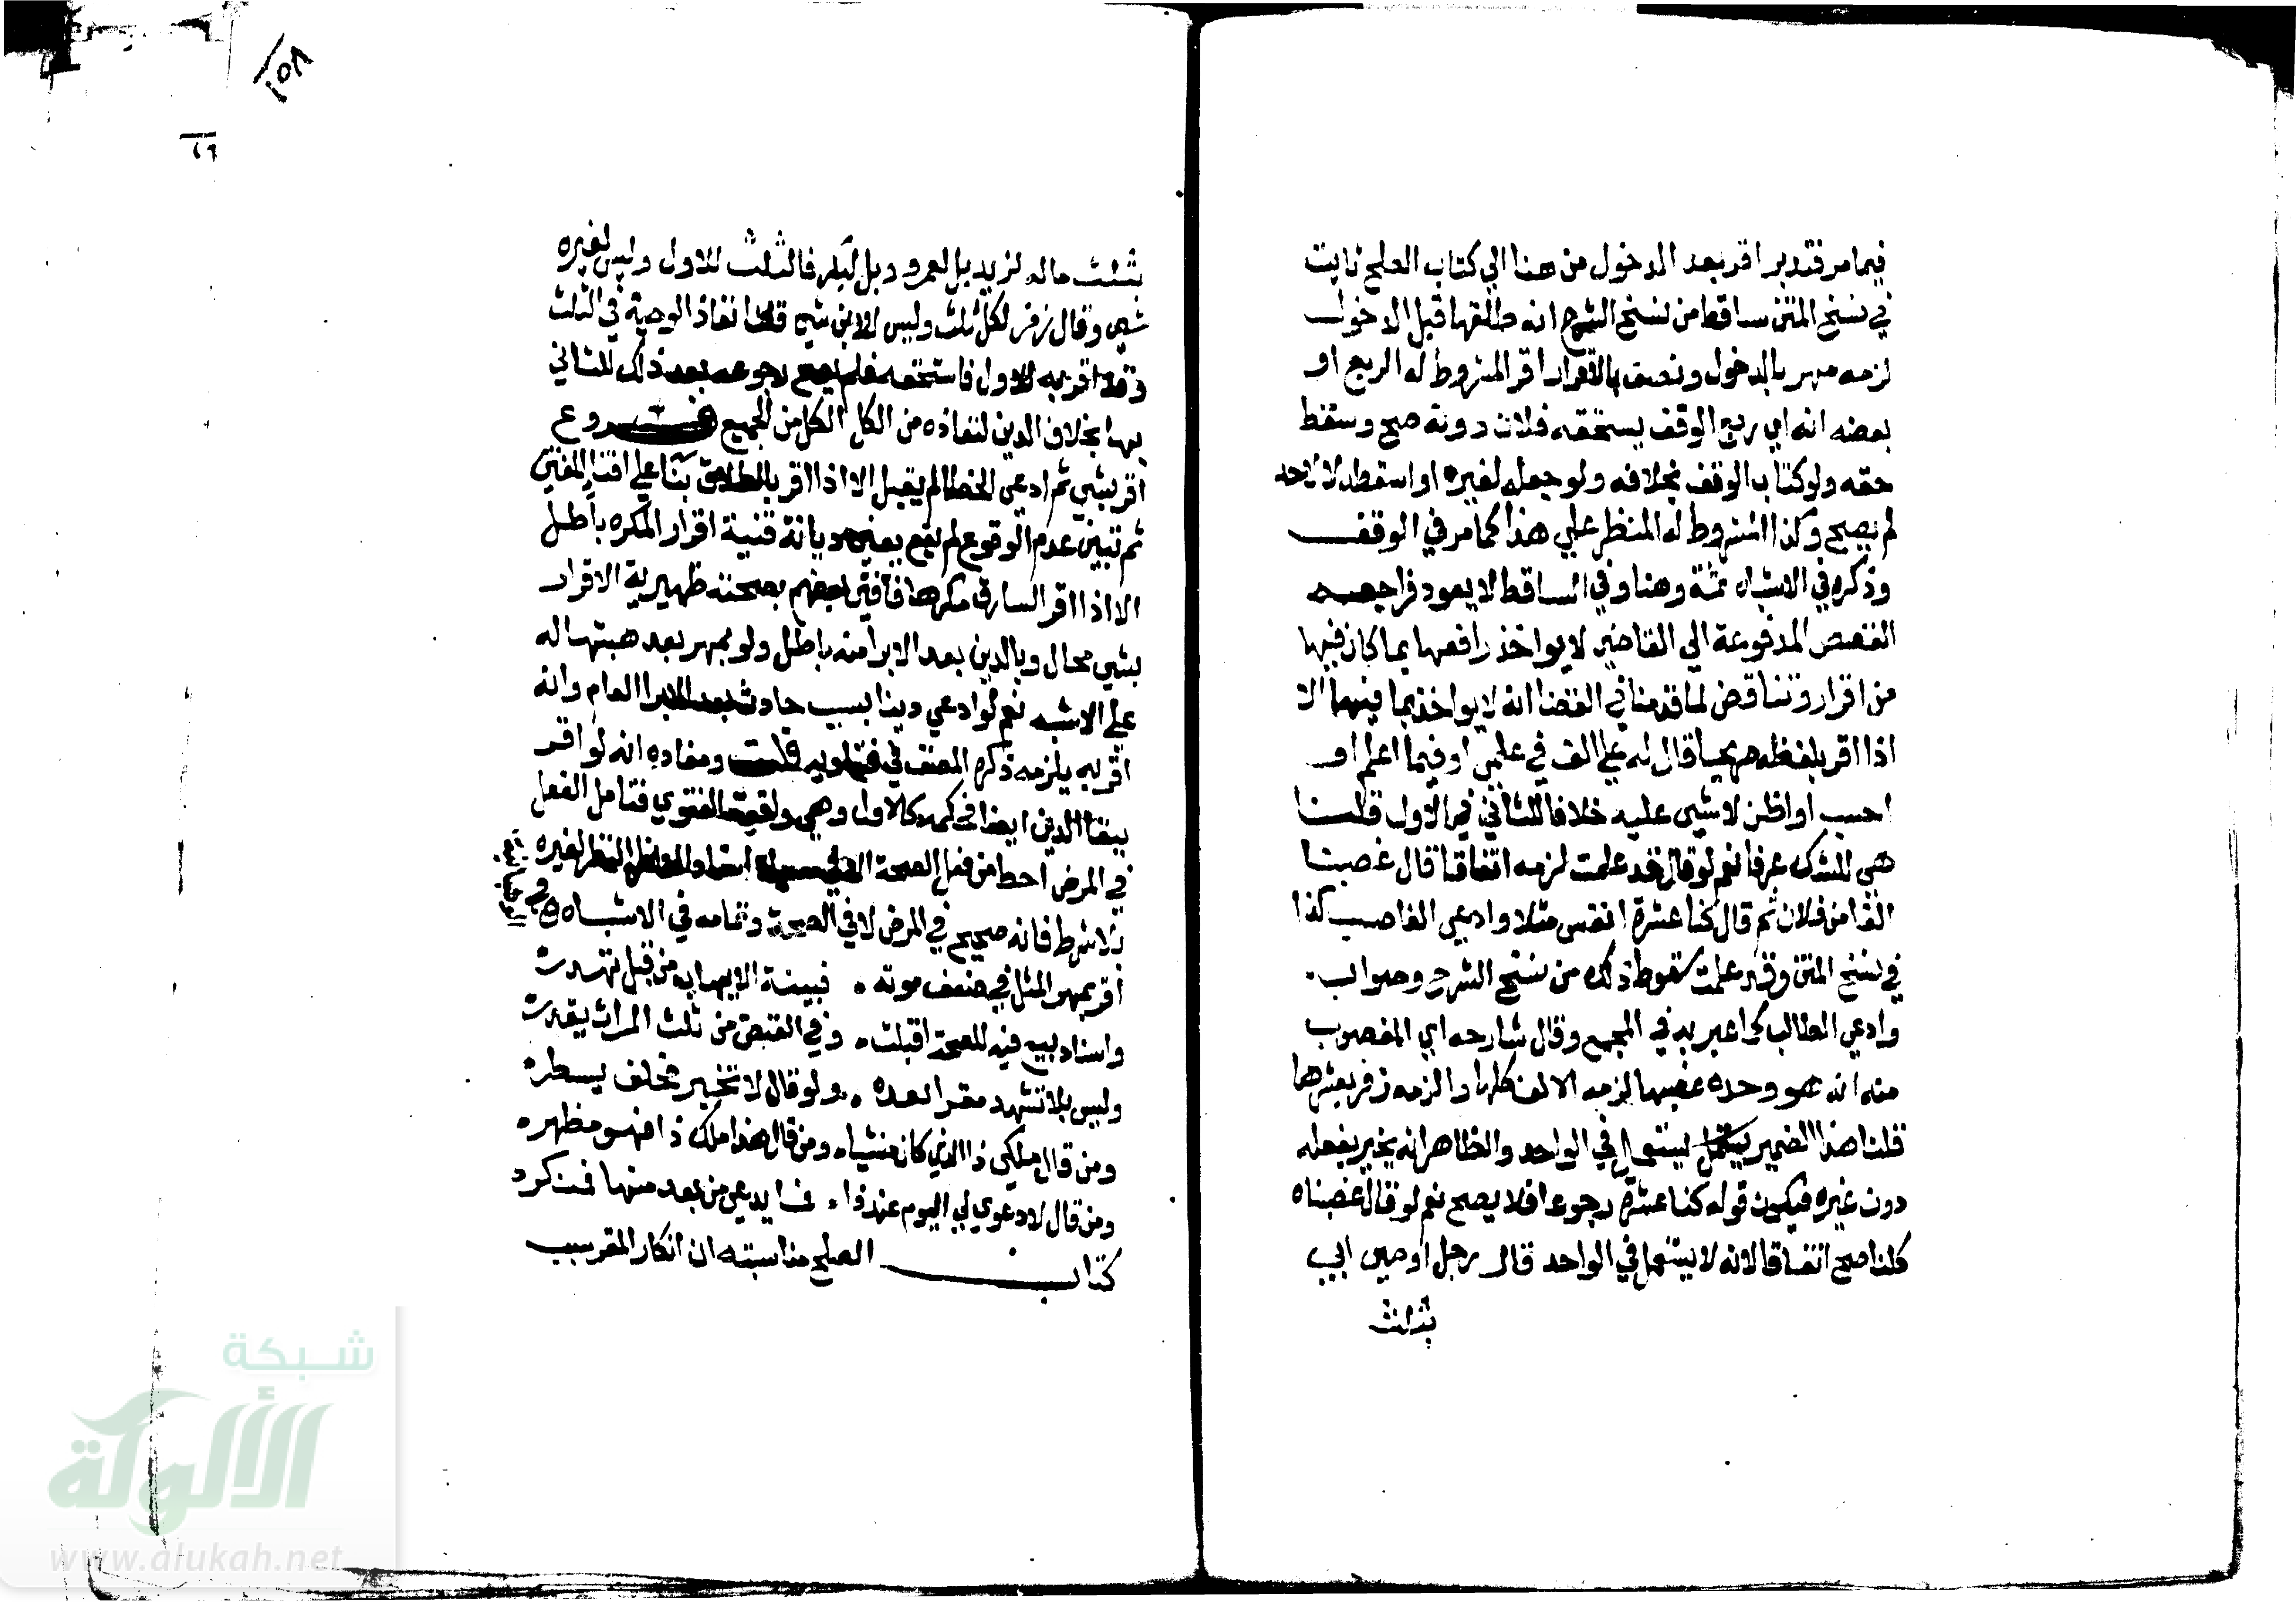 فيما مر فتدبر اقر بعد الدخول من هنا الي كتاب الصلح ثابت
في نسخ المتن ساقط من نسخ الشرح انه طلقها قبل الدخول
لزمه مهر بالدخول ونصف بالاقرار اقر المشروط له الريع او
بعضه انه اي ريع الوقف يستحقه فلان دونه صح وسقط
حقه ولو كتاب الوقف بخلافه ولو جعله لغيره او اسقطه لا لاحد
لم يصح وكذا المشروط له النظر علي هذا كما مر في الوقف
وذكره في الاشباه ثمة وهنا وفي الساقط لا يعود فراجعه
القصص المدفوعة الي القاضي لا يواخذ رافعها بما كان فيها
من اقرار وتناقض لما قدمنا في القضا انه لا يواخذ بما فيها الا
اذا اقر بلفظه صريحا قال له علي الف في علمي او فيما اعلم او
احسب او اظن لا شيي عليه خلافا للثاني في الاول قلنا
هي للشك عرفا نعم لو قال قد علمت لزمه اتفاقا قال غصبنا
الفا من فلان ثم قال كنا عشرة انفس مثلا وادعي الغاصب كذا
في نسخ المتن وقد علمت سقوط ذلك من نسخ الشرح وصوابه
وادعي الطالب كما عبر به في المجمع وقال شارحه اي المغصوب
منه انه هو وحده غصبها لزمه الالف كلها والزمه زفر بعشرها
قلنا هذا الضمير يستعمل في الواحد والظاهر انه يخبر بفعله
دون غيره فيكون قوله كنا عشرة رجوعا فلا يصح نعم لو قال غصبناه
كلنا صح اتفاقا لانه لا يستعمل في الواحد قال رجل اوصي ابي
بثلث
١٥٨
٦٩
بثلث ماله لزيد بل لعمرو بل لبكر فالثلث للاول وليس لغيره
شيي وقال زفر لكل ثلث وليس للابن شيي قلنا نفاذ الوصية في الثلث
وقد اقر به للاول فاستحقه فلم يصح رجوعه بعد ذلك للثاني
بها بخلاف الدين لنفاذه من الكل الكل من المجمع فروع
اقر بشيي ثم ادعي الخطا لم يقبل الا اذا اقر بالطلاق بنا علي افتا المفتي
ثم تبين عدم الوقوع لم يقع يعني ديانة قنية اقرار المكره باطل
الا اذا اقر السارق مكرها فافتي بعضهم بصحته ظهيرية الاقرار
بشيي محال وبالدين بعد الابرا منه باطل ولو بمهر بعد هبتها له
علي الاشبه نعم لو ادعي دينا بسبب حادث بعد الابرا العام وانه
اقر به يلزمه ذكره المصنف في فتاويه قلت ومفاده انه لو اقر
ببقا الدين ايضا فحكمه كالاول وهي واقعة الفتوي فتامل الفعل
في المرض احط من فعل الصحة الا في اسناد الناظر النظر لغيره
بلا شرط فانه صحيح في المرض لا في الصحة وتمامه في الاشباه
اقر بمهر المثل في ضعف موته . فبينة الايهاب من قبل تهدرث
واسناد بيع فيه للصحة اقبلن . وفي القبض من ثلث التراث يقدر
وليس بلا تشهد مقرا نعده . ولو قال لا تخبر فخلف يسطر
ومن قال ملكي ذا لذي كان منشيا . ومن قال هذا ملك ذا فهو مظهر
ومن قال لا دعوي لي اليوم عند ذا . فما يدعي من بعد منها فمنكر
كتاب الصلح مناسبته ان انكار المقر سبب
شبكة
الألوكة
www.alukah.net